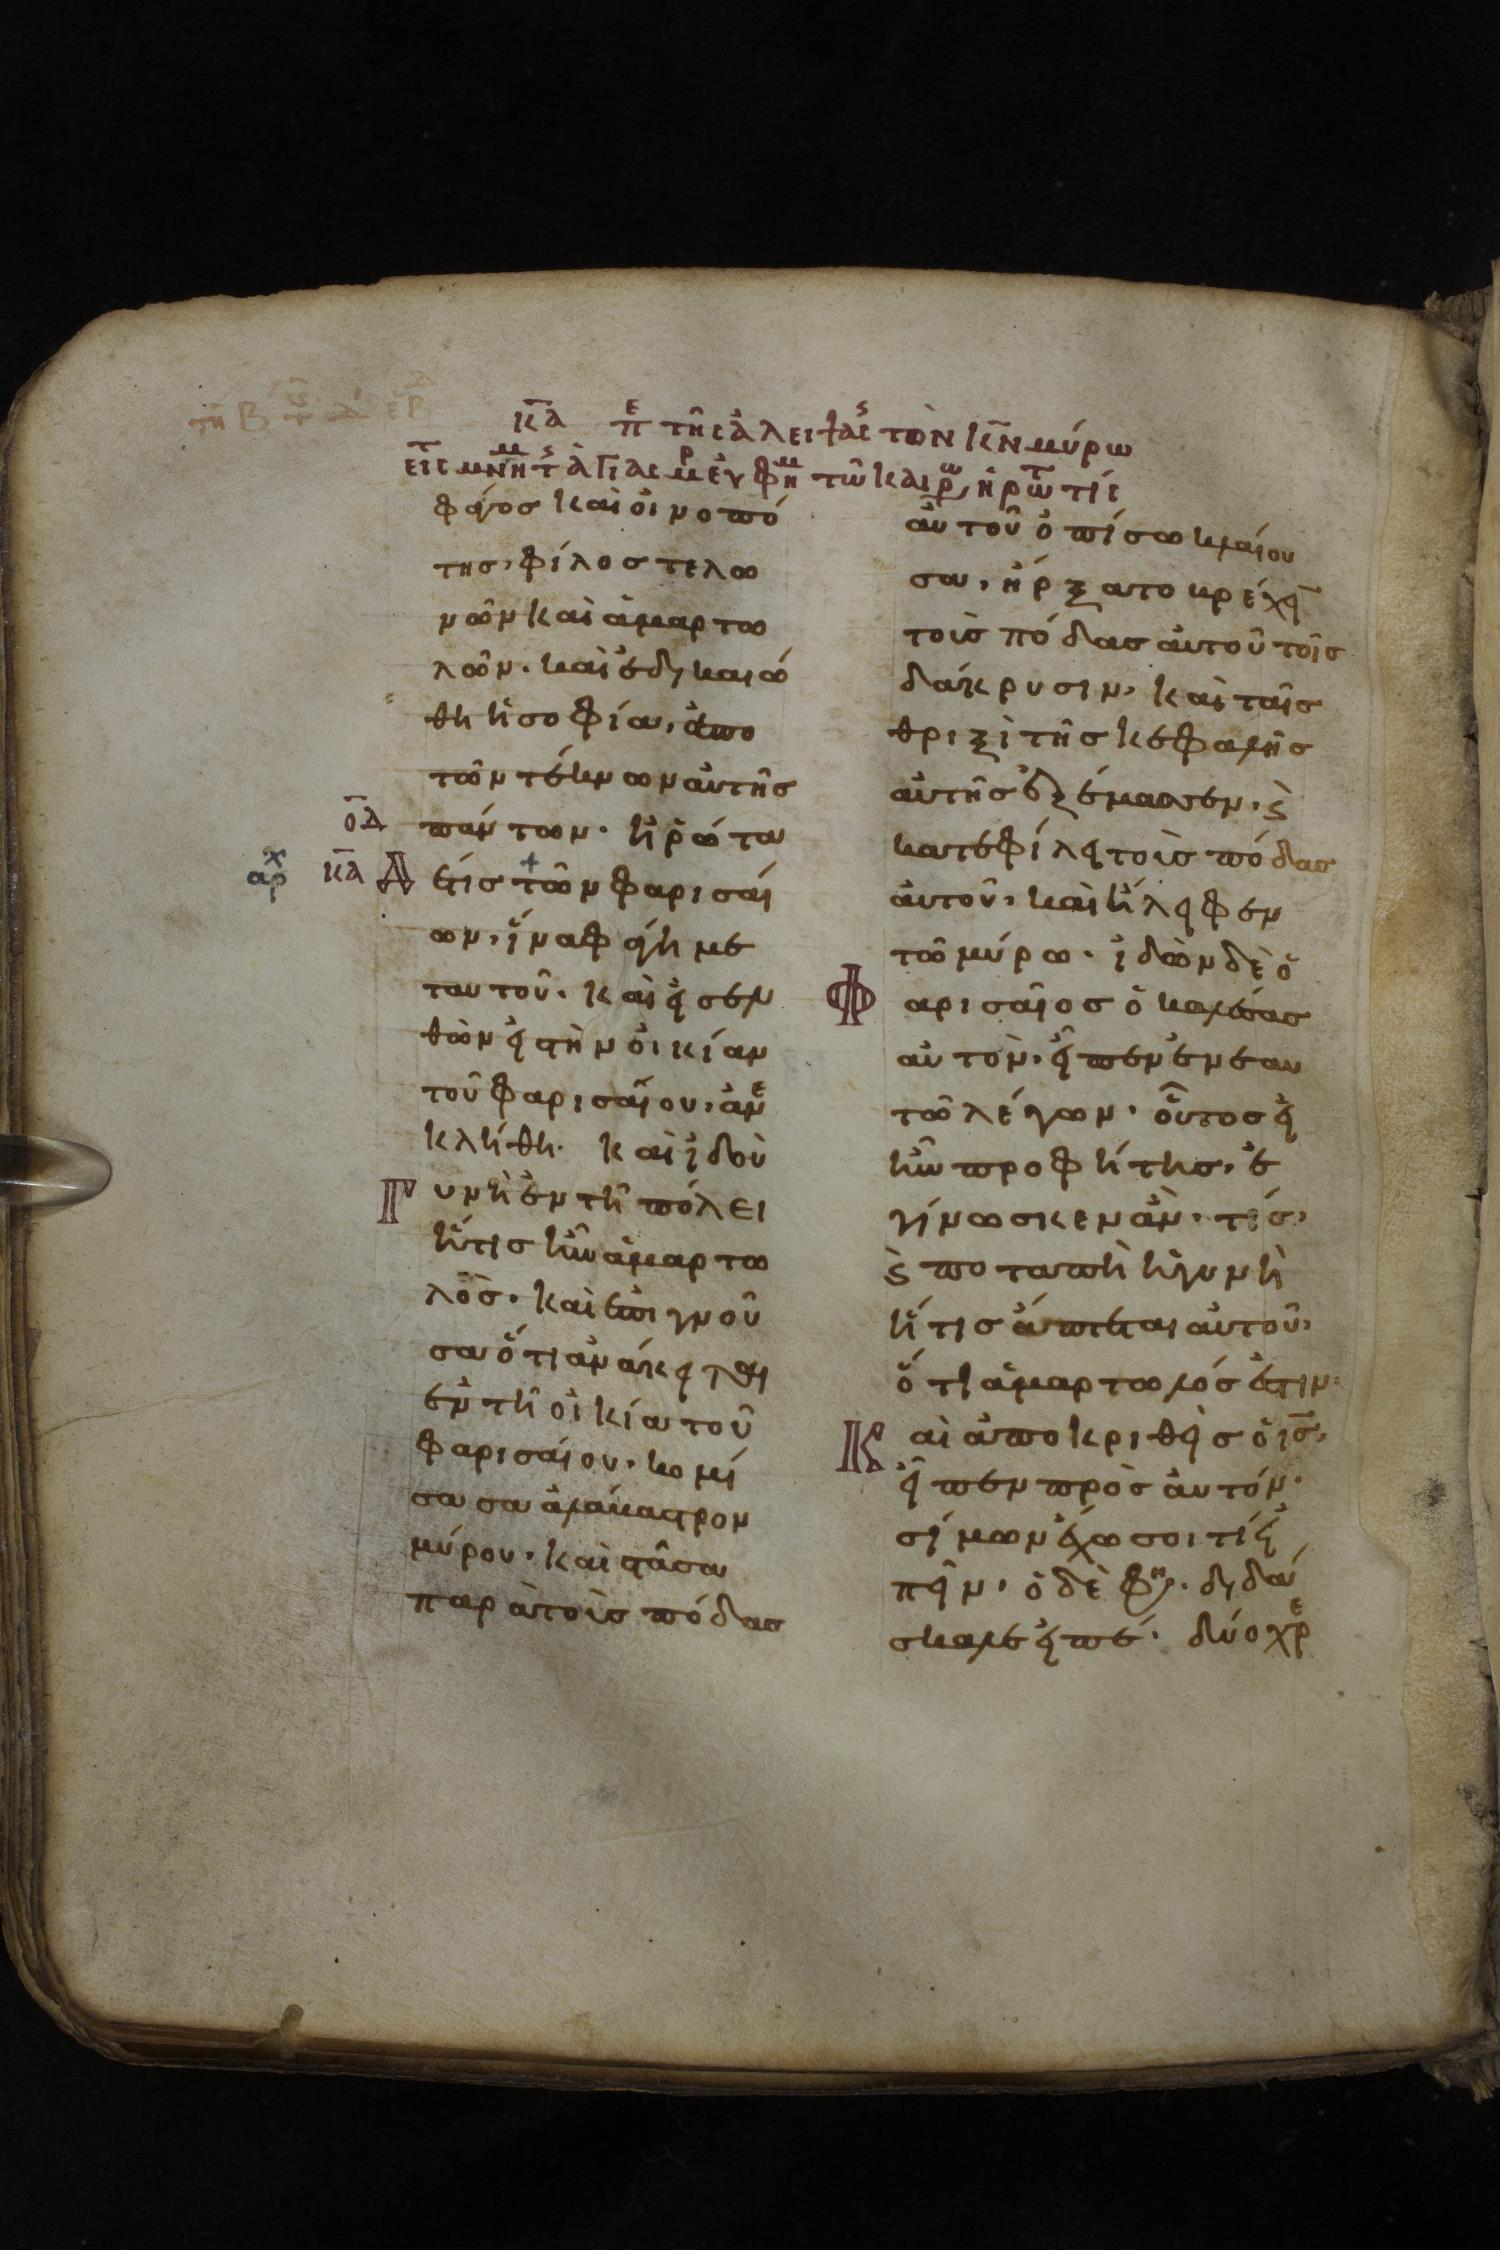 κα πε της αλειψας τον κν μύρω
φάγος καὶ οἰνοπό
της, φίλος τελω
νῶν καὶ ἁμαρτω
λῶν. καὶ ἐδικαιώ
θη ἡ σοφία, ἀπο
τῶν τέκνων αὐτῆς
πάντων. ἠρώτα
οδ
κα
αρχ
Δ ἑτις τῶν φαρισαί
ων, ἵνα φάγη με
τ αυτοῦ. καὶ εἰσελ
θὼν εἰς τὴν οἰκίαν
τοῦ φαρισαίου, ἀνε
κλήθη. καὶ ἰδοὺ
Γ υνὴ ἐν τῆ πόλει
ἥτις ἦν ἁμαρτω
λὸς. καὶ ἐπιγνοῦ
σα ὅτι ἀνάκειται
ἐν τῆ οἰκία τοῦ
φαρισαίου. κομί
σασα ἀλάβαστρον
μύρου. καὶ στᾶσα
παρὰ τοὺς πόδας
αὐτοῦ ὀπίσω κλαίου
σα, ἤρξατο βρέχειν
τοὺς πόδας αὐτοῦ τοῖς
δάκρυσιν, καὶ ταῖς
θριξὶ τῆς κεφαλῆς
αὐτῆς ἐξέμασσεν, ϗ
κατεφίλει τοὺς πόδας
αὐτοῦ, καὶ ἤλειφεν
τῶ μύρω. ἰδὼν δὲ ὁ
Φ αρισαῖος ὁ καλέσας
αὐτὸν, εἶπεν ἐν ἑαυ
τῶ λέγων. οὗτος εἰ
ἦν προφήτης, ἐ
γίνωσκεν ἂν, τίς,
ϗ ποταπὴ ἡ γυνὴ
ἥτις ἅπτεται αὐτοῦ,
ὅτι ἁμαρτωλός ἐστιν.
Κ αὶ ἀποκριθεὶς ὁ ις,
εἶπεν πρὸς αὐτόν.
σίμων ἔχω σοι τί εἰ
πεῖν, ὁ δὲ φη. διδά
σκαλε εἰπέ. δύο χρε